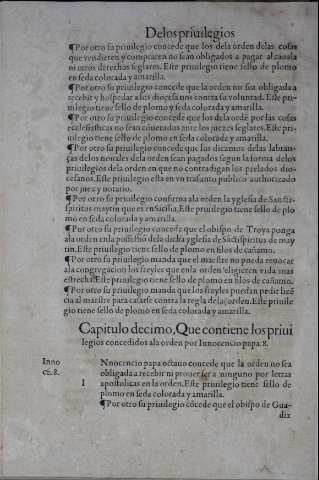 De los priuilegios
¶Por otro su priuilegio concede que los dela orden delas cosas
que vendieren y compraren no sean obligados a pagar alcauala
ni otros derechos seglares. Este priuilegio tiene sello de plomo
en seda colorada y amarilla.
¶Por otro su priuilegio concede que la orden no sea obligada a
recebir y hospedar a los diocesanos contra su voluntad. Este pri-
uilegio tiene sello de plomo y seda colorada y amarilla.
¶Por otro su priuilegio concede que los dela ordē por las cosas
ecclesiasticas no sean conuenidos ante los juezes seglares. Este pri-
uilegio tiene sello de plomo en seda colorada y amarilla.
¶Por otro su priuilegio concede que los diezmos delas labran-
ças delos nouales dela orden sean pagados segun la forma delos
priuilegios dela orden en que no contradigan los prelados dio-
cesanos. Este priuilegio esta en vn trasunto publico authorizado
por juez y notario.
¶Por otro su priuilegio confirma ala orden la yglesia de Sancti
spiritus maytin que es en Sicilia. Este priuilegio tiene sello de plo
mo en seda colorada y amarilla.
¶Por otro su priuilegio concede que el obispo de Troya ponga
ala orden en la possessiō dela dicha yglesia de Sāctispiritus de may
tin. Este priuilegio tiene sello de plomo en filos de cañamo.
¶Por otro su priuilegio manda que el maestre no pueda reuocar
ala congregacion los freyles que en la orden eligieren vida mas
estrecha. Este priuilegio tiene sello de plomo en filos de cañamo.
¶Por otro su priuilegio manda que los freyles puedan pedir licē
cia al maestre para casarse contra la regla dela orden. Este priuile
gio tiene sello de plomo en seda colorada y amarilla.
Capitulo decimo, Que contiene los priui
legios concedidos ala orden por Innocencio papa. 8.
Inno
cē. 8.
I
Nnocencio papa octauo concede que la orden no sea
obligada a recebir ni proueer a ninguno por letras
apostolicas en la orden. Este priuilegio tiene sello de
plomo en seda colorada y amarilla.
¶Por otro su priuilegio cōcede que el obispo de Gua-
dix